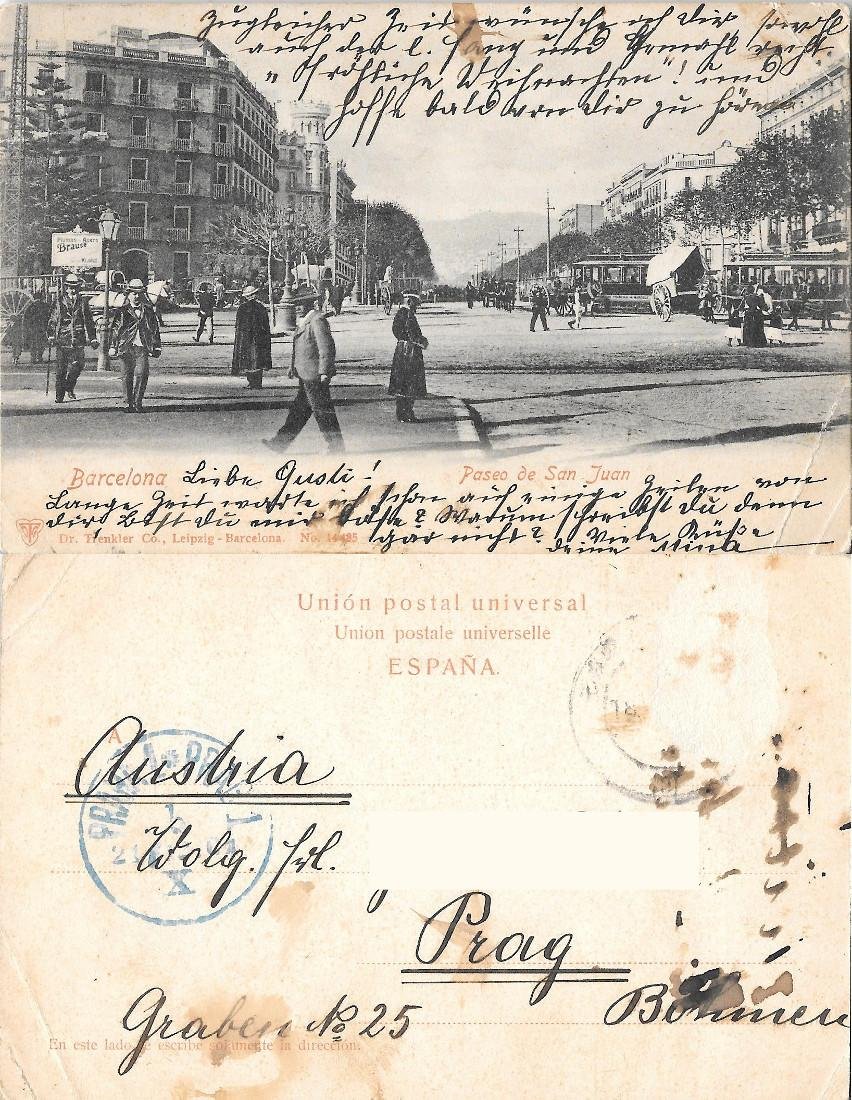 Zugleicher Zeit wünsche ich Dir sowohl
auch der l. Fanÿ und Gemahl recht
"Fröhliche Weihnachten"! und
hoffe bald von Dir zu hören
Plumas - Aders
Brause
Barcelona Liebe Gusti! Paseo de San Juan
Lange Zeit warte ich schon auf einige Zeilen von
dir, bist Du mir böse? Warum schreibst Du denn
gar nicht? Viele Küße
deine Mina
Dr. Trenkler Co., Leipzig - Barcelona. No. 14485
Unión postal universal
Union postale universelle
ESPAÑA.
A
Austria
Wolg. Frl.
Prag
Böhmen
Graben No 25
En este lado se escribe solamente la dirección.